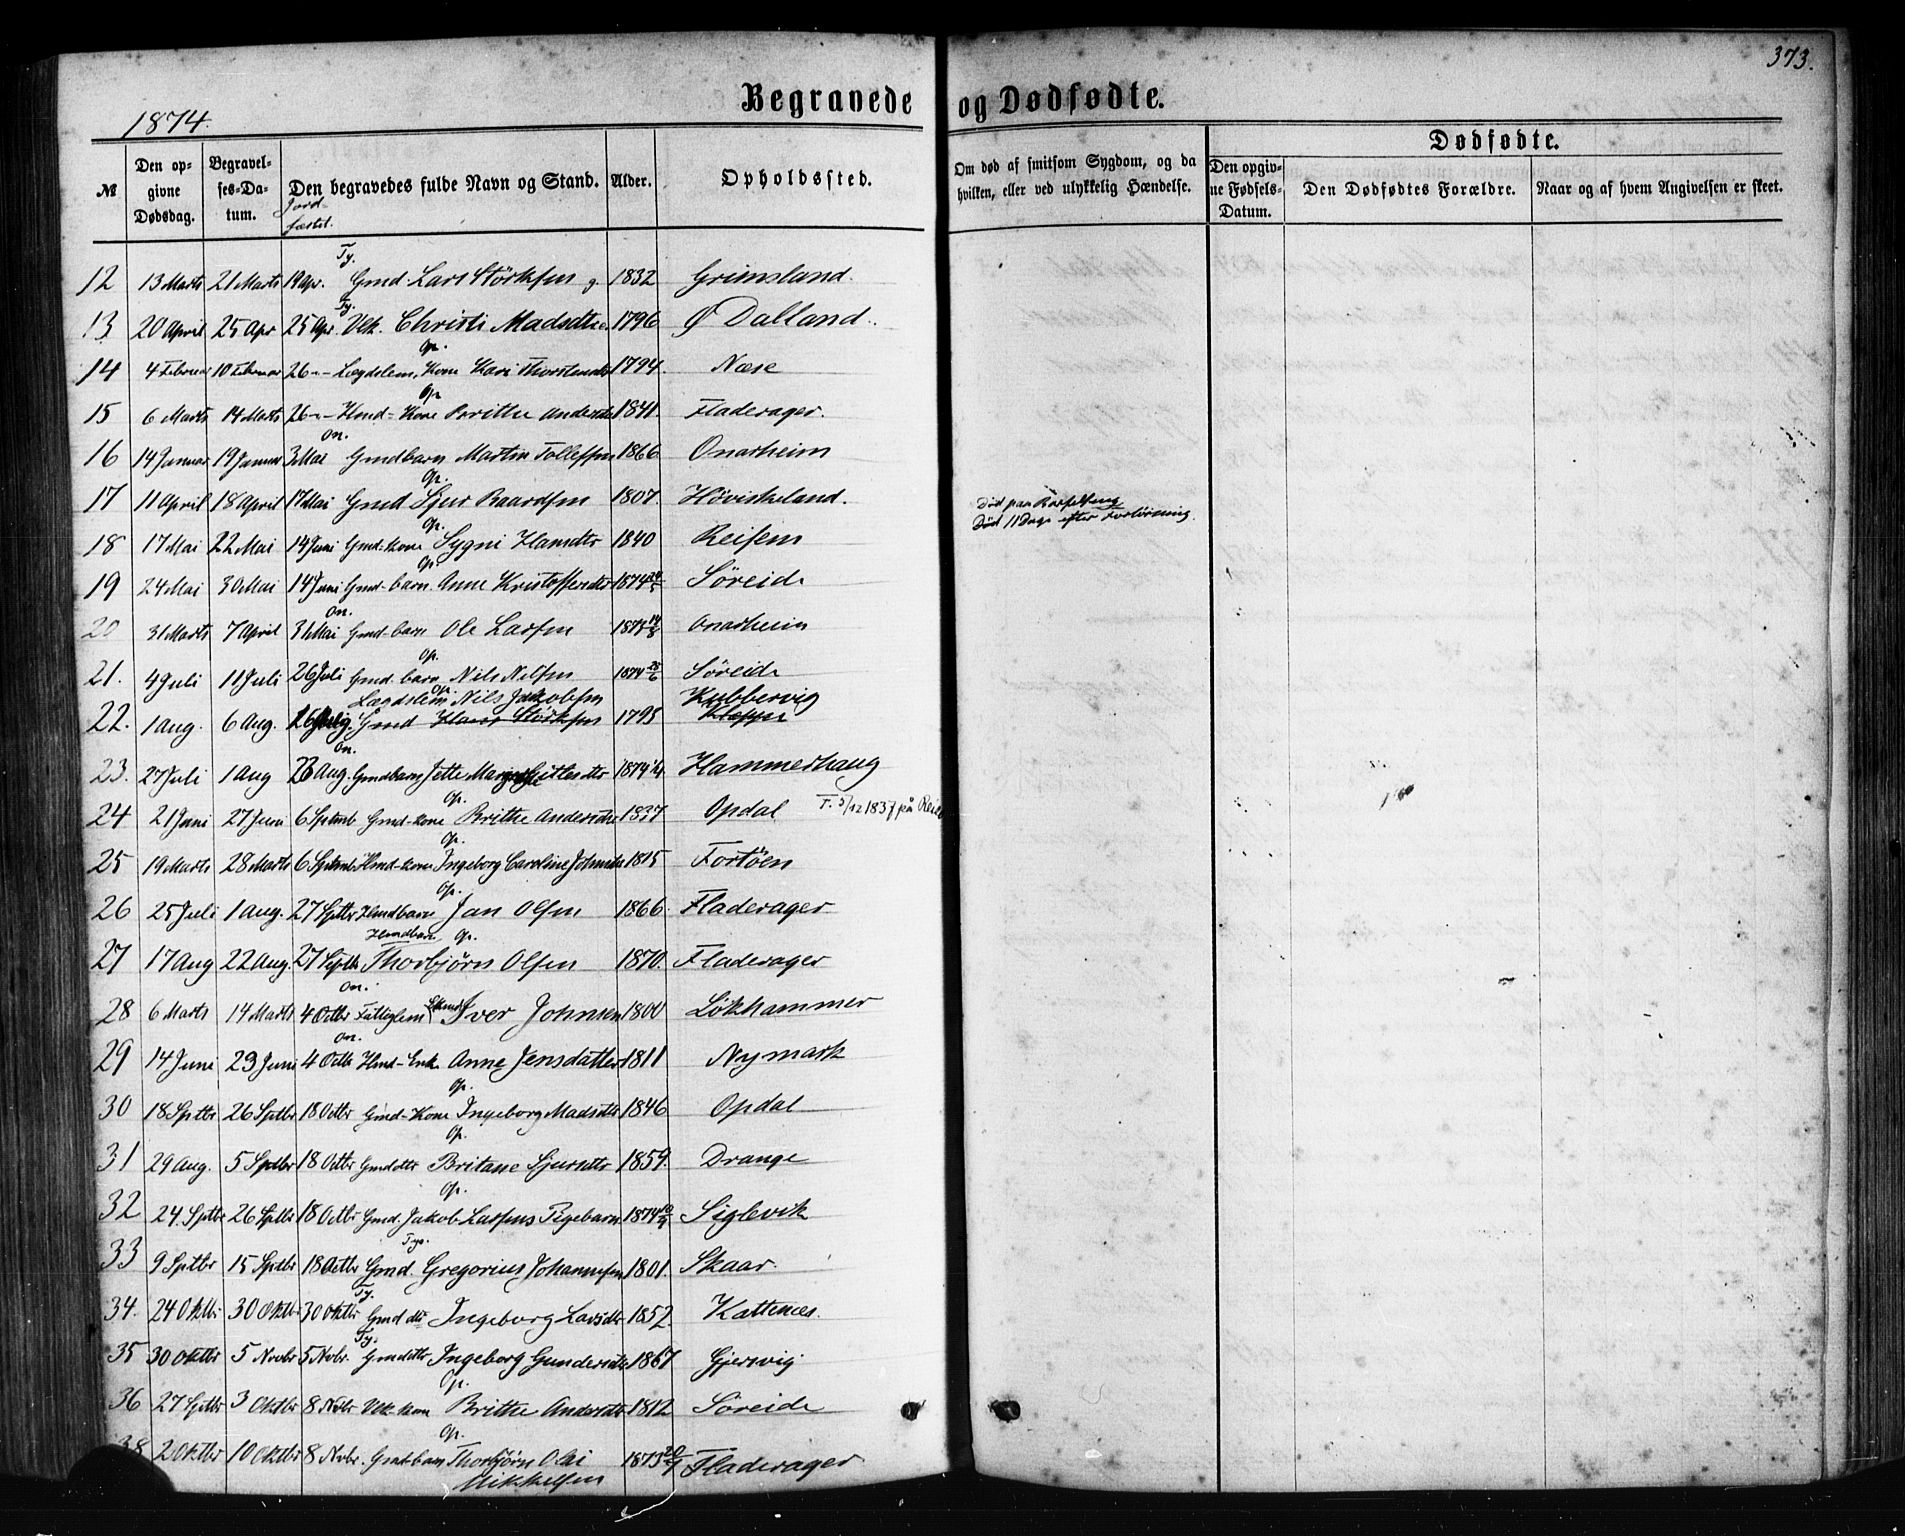 373.
1874.
Begravede og Dødfødte.
№
Den opgivne Dødsdag.
Begravelses-Datum.
Den begravedes fulde Navn og Stand.
Jordfæstet.
Alder.
Opholdssted.
Om død af smitsom Sygdom, og da hvilken, eller ved ulykkelig Hændelse.
Dødfødte.
Den opgivne Fødsels-Datum.
Den Dødfødtes Forældre.
Naar og af hvem Angivelsen er skeet.
Ty.
12 13 Marts 21 Marts 19 Apr. Gmd. Lars Størksen 1832 Grimsland.
Ty.
13 20 April 25 Apr 25 Apr. Vlk. Christi Madsdtr 1796 Ø Dalland.
Op.
14 4 Februar 10 Februar 26 -"- Lægdslem, Kone Kari Thorstensdtr 1794. Næse
Op.
15 6 Marts 14 Marts 26 -"- Hmd-Kone Brithe Andersdtr 1841. Fladerager.
On.
16 14 Januar 19 Januar 3 Mai Gmdbarn Martin Tollefsen 1866 Onarheim
Op.
17 11 April 18 April 17 Mai Gmd Sjur Baardsen 1807. Høviskeland.
Død paa Barselseng
Død 11 Dage efter Forløsning.
Op.
18 17 Mai 22 Mai 14 Juni Gmd-kone Sygni Hansdtr 1840 Reisem
Op.
19 24 Mai 30 Mai 14 Juni Gmd-barn Anne Kristoffersdtr 1874 Søreide
On.
20 31 Marts 7 April 31 Mai Gmd-barn Ole Larsen 1873 Onarheim
Op.
21. 4 Juli 11 Juli 26 Juli Gmd. barn Nils Nilsen 1874 Søreide
Op.
Lægdslem Nils Jakobsen Kubbervig
22. 1 Aug. 6 Aug. Gmd Hans Størksen 1795 Kleppe
On.
23. 27 Juli 1 Aug 23 Aug. Gmdbarn Jette 1874 Hammerhaug
Op.
24 21 Juni 27 Juni 6 Septemb Gmd-kone Brithe Andersdtr 1837 Opdal F. 5/12 1837 på
Op.
25 19 Marts 28 Marts 6 Septemb Hmd-kone Ingeborg Caroline Johnsdtr 1815 Fortøen
Op.
26 25 Juli 1 Aug. 27 Sptbr Hmdbarn Jan Olsen 1866. Fladerager
Hmdbarn Op.
27 17 Aug 22 Aug. 27 Septb Thorbjørn Olsen 1870. Fladerager
On.
28 6 Marts 14 Marts 4 Octbr Fattiglem Iver Johnsen 1800 Løkhammer
On.
29 14 Juni 23 Juni 4 Octb Hmd-Enk. Anne Jensdatter 1811 Nymark
Op.
30 18 Sptbr 26 Sptbr 18 Octbr Gmd-Kone Ingeborg Madsdtr 1846 Opdal
Op.
31 29 Aug. 5 Sptbr 18 Octbr Gmddtr Britane Sjursdtr 1859. Drange
Op.
32 24 Sptbr 26 Sptbr 18 Octbr Gmd. Jakob Larsens Pigebarn 1874 Siglevik
Tys.
33 9 Sptbr 15 Sptbr 18 Octbr Gmd. Gregorius Johannesen 1801. Skaar.
Ty.
34. 24 Oktbr 30 Oktbr 30 Oktbr Gmd dtr Ingeborg Larsdtr 1852. Kattenes.
Ty.
35 30 Oktbr 5 Novbr 5 Novbr. Gmddtr Ingeborg Gundersdtr 1867 Gjersvig
Op.
36 27 Sptbr 3 Oktbr 8 Novbr Vlk-kone Brithe Andersdtr 1812 Søreide
Op.
38 2 Oktbr 10 Oktbr 8 Novbr. Gmd-barn Thorbjørn Olai Mikkelsen 1873 Fladerager